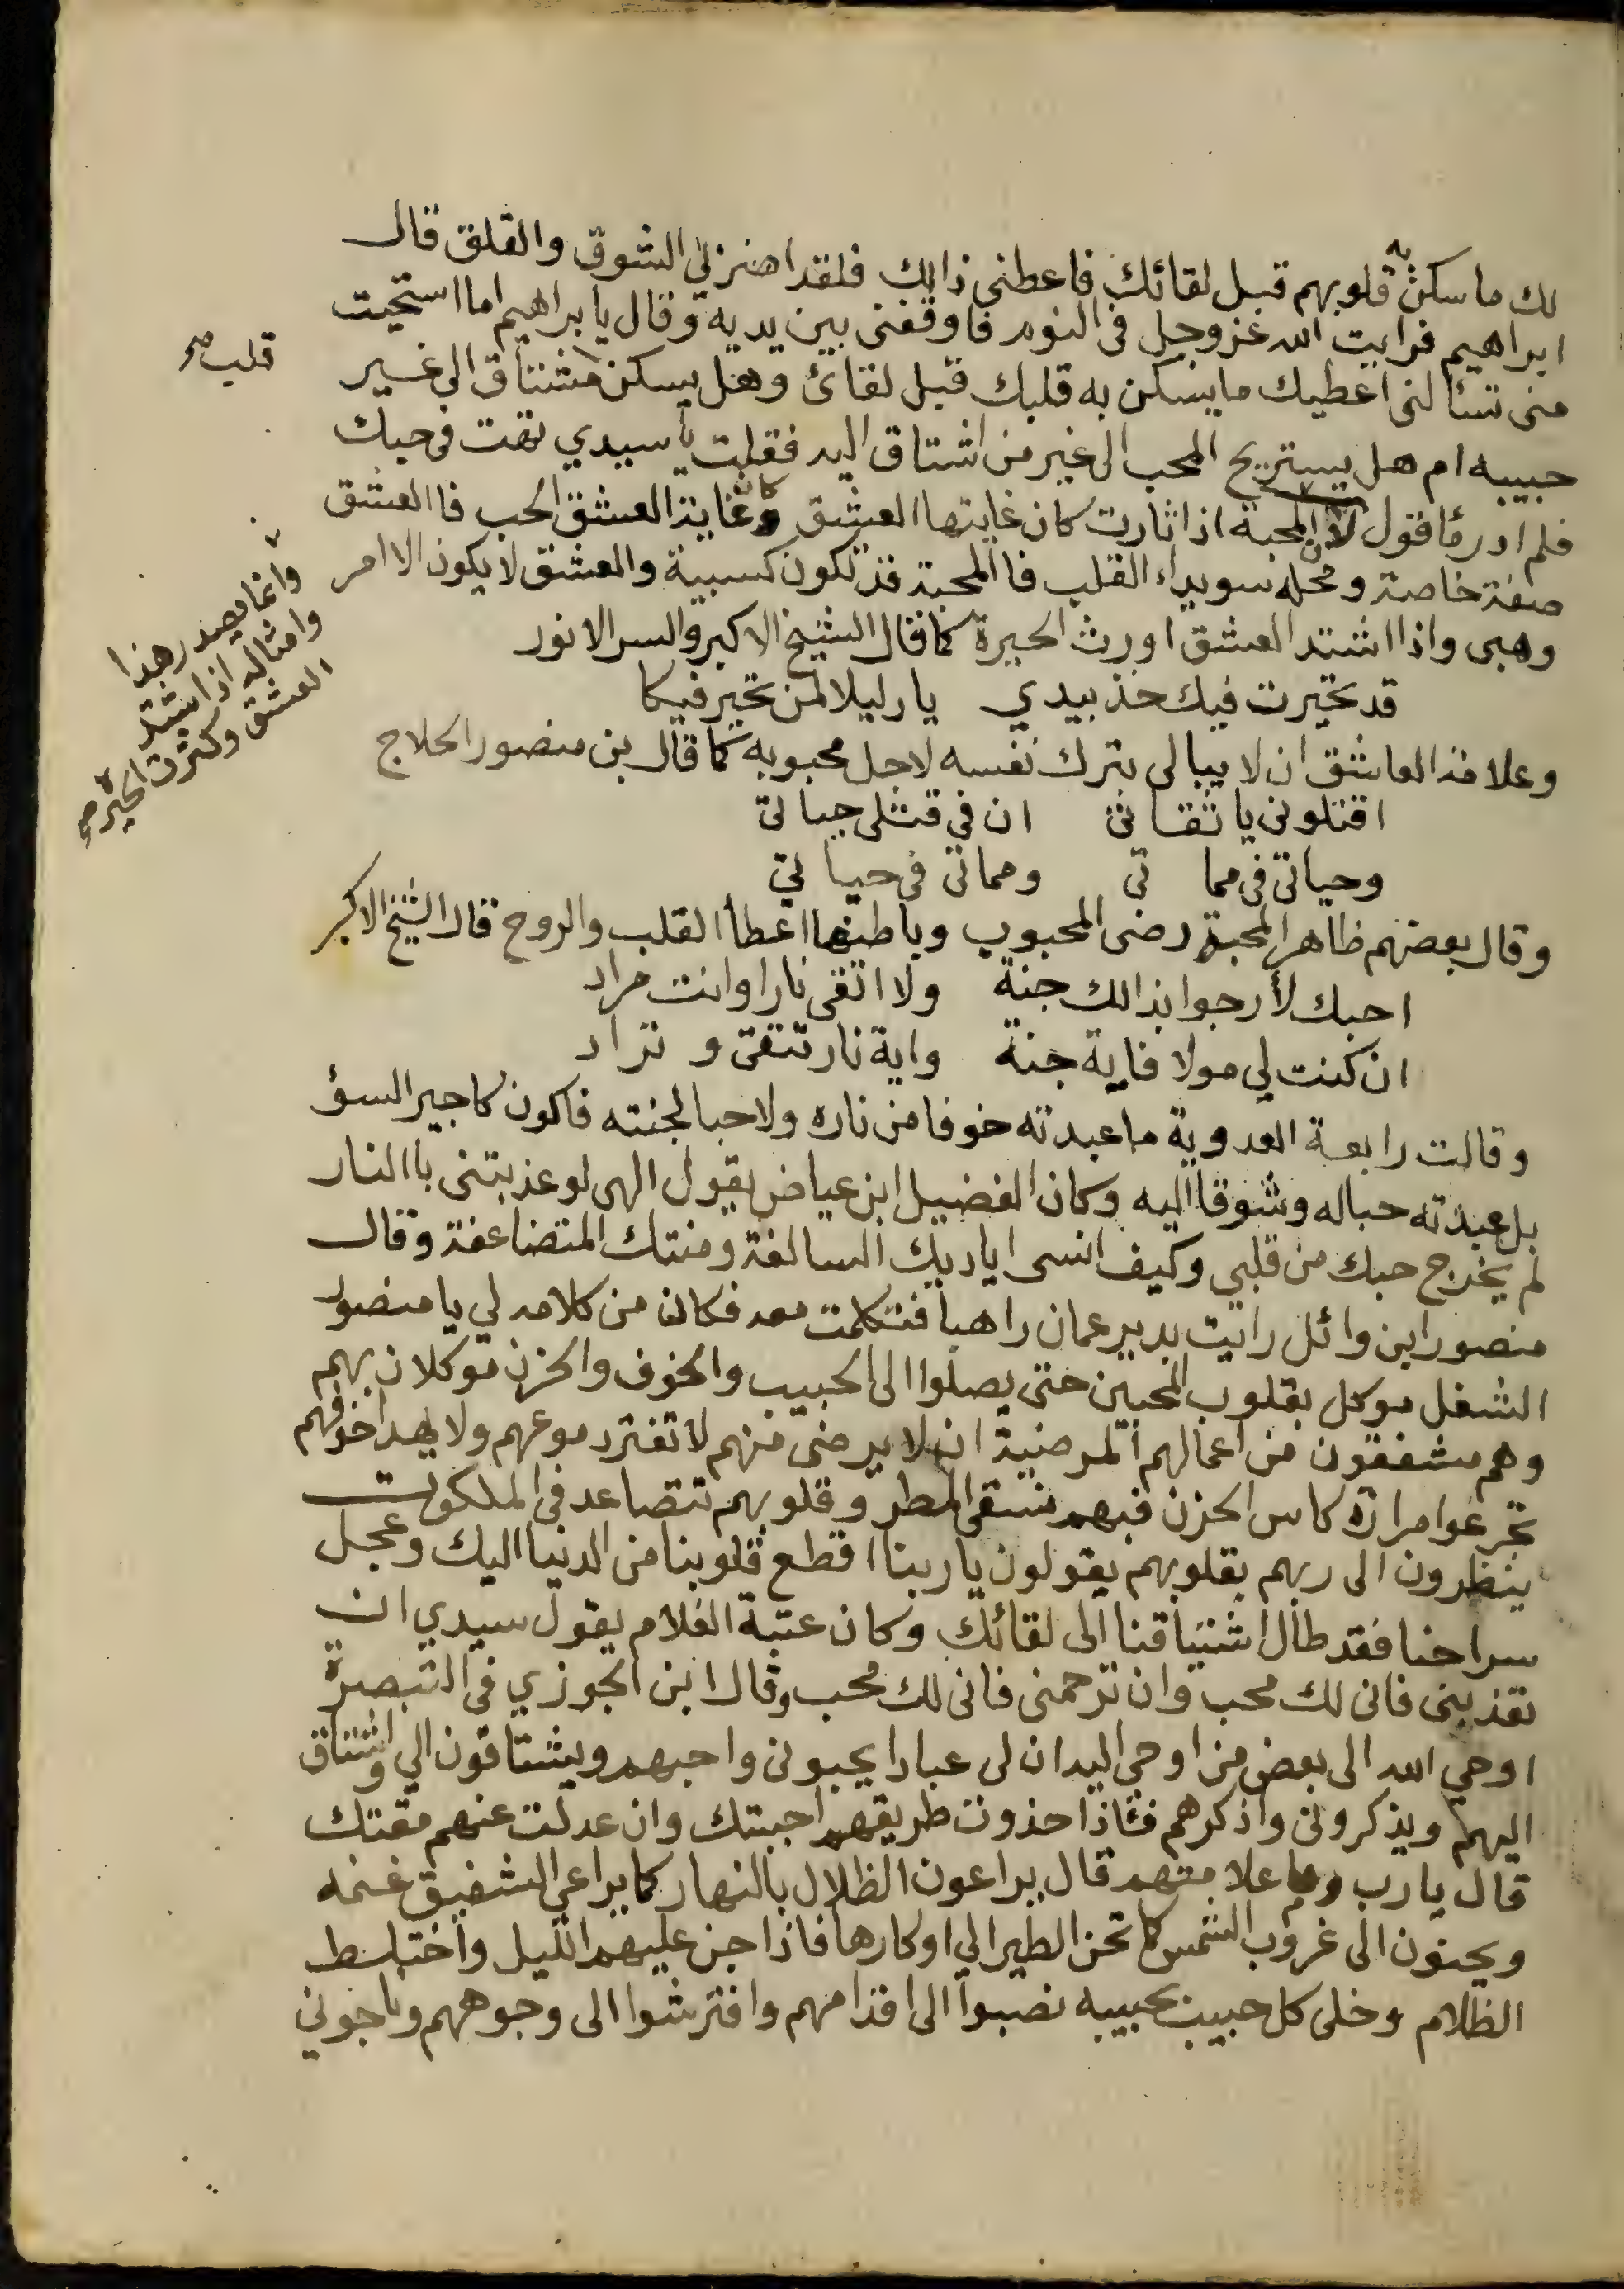 لك ما سكنت به قلوبهم قبل لقائك فاعطنى ذالك فلقد اضزنى الشوق والقلق قال
ابراهيم فرايت الله عز وجل فى النوم فاوقفنى بين يديه وقال يا براهيم اما استحيت
منى تسألنى اعطيك ما يسكن به قلبك قبل لقائ وهل يسكن مشتاق الى غير
قلب صح
حبيبه ام هل يستريح المحب الى غير من اشتاق اليه فقلت يا سيدي تهت فى حبك
فلم ادر ما قول لان المحبة اذا ثارت كان غايتها العشق وكان غاية العشق الحب فاالعشق
صفة خاصة ومحله سويداء القلب فاالمحبة قد تكون كسبية والعشق لا يكون الا امر
وهبى واذا اشتد العشق اورث الحيرة كما قال الشيخ الاكبر والسر الانور
وانما يصدر هذا
وامثاله اذا اشتد
العشق وكثرت الحيرة صح
قد تحيرت فيك خذ بيدي يا دليلا لمن تحير فيكا
وعلامة العاشق ان لا يبالى بترك نفسه لاجل محبوبه كما قال بن منصور الحلاج
اقتلونى يا ثقاتى ان فى قتلى حياتى
وحياتى فى مماتى ومماتى فى حياتى
وقال بعضهم ظاهر المحبة رضى المحبوب وباطنها اعطأ القلب والروح قال الشيخ الاكبر
احبك لا ارجوا بذالك جنة ولا اتقى نارا وانت مراد
ان كنت لي مولا فاية جنة واية نار تتقى و تراد
وقالت رابعة العدوية ما عبدته خوفا من ناره ولا حبا لجنته فاكون كا جير السؤ
بل عبدته حباله وشوقا اليه وكان الفضيل ابن عياض يقول الهى لو عذبتنى باالنار
لم يخرج حبك من قلبي وكيف انسى اياديك السالفة ومنتك المتضاعفة وقال
منصور ابن وائل رايت بدير عمان راهبا فتكلمت معه فكان من كلامه لي يا منصور
الشغل موكل بقلوب المحبين حتى يصلوا الى الحبيب والخوف والحزن موكلان بهم
وهم مشفقون من اعمالهم المرضية ان لا يرضى منهم لا تفتر دموعهم ولا يهدا خوفهم
تجرعوا مرارة كاس الحزن فبهم نسقى المطر وقلوبهم تتصاعد فى الملكوت
ينظرون الى ربهم بقلوبهم يقولون يا ربنا اقطع قلوبنا من الدنيا اليك وعجل
سراحنا فقد طال اشتياقنا الى لقائك وكان عتبة الغلام يقول سيدي ان
تعذبنى فانى لك محب وان ترحمنى فانى لك محب وقال ابن الجوزي فى التبصرة
اوحي الله الى بعض من اوحي اليه ان لى عبادا يحبونى واحبهم ويشتاقون الي واشتاق
اليهم ويذكرونى واذكرهم فاذا حذوت طريقهم احببتك وان عدلت عنهم مقتك
قال يا رب وما علامتهم قال يراعون الظلال بالنهار كما يراعي الشفيق غنمه
ويحنون الى غروب الشمس كا تحن الطير الي اوكارها فاذا جن عليهم الليل واختلط
الظلام وخلى كل حبيب بحبيبه نصبوا الى اقدامهم وافترشوا الى وجوههم وناجونى